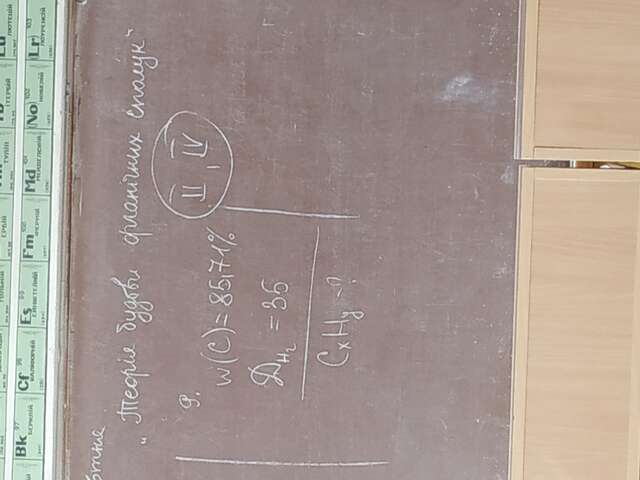 ЕРБІЙ
ТУЛІЙ
ТЕРБІЙ
ЛЮТЕЦІЙ
Bk 97 БЕРКЛІЙ
Cf 98 КАЛІФОРНІЙ
Es 99 ЕЙНШТЕЙНІЙ
Fm 100 ФЕРМІЙ
Md 101 МЕНДЕЛЕВІЙ
No 102 НОБЕЛІЙ
Lr 103 ЛОУРЕНСІЙ
„Теорія будови органічних сполук"
9.
II, IV
w(C) = 85,71%
D_H₂ = 35
CxHy - ?